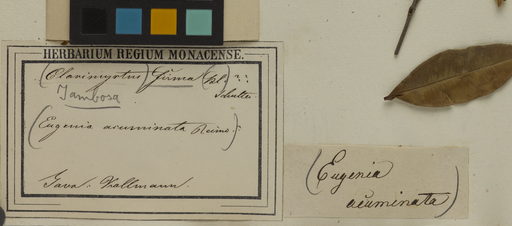 HERBARIUM REGIUM MONACENSE.
(Clavimyrtus) firma (Bl.) ??
Jambosa
(Eugenia acuminata Reinw.)
Java: Zollmann.
(Eugenia
acuminata)